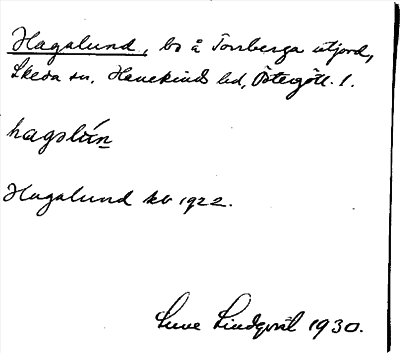 Hagalund, bs å Torrberga utjord,
Skeda sn, Hanekinds hd, Östergötl. l.
hagslún
Hagalund kb 1922.
Sune Lindqvist 1930.